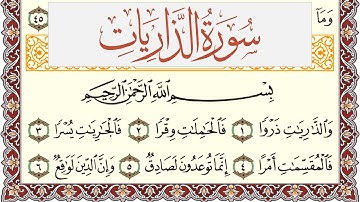 وَمَآ ٤٥
سُورَةُ الذَّارِيَاتِ
بِسْمِ ٱللَّهِ ٱلرَّحْمَٰنِ ٱلرَّحِيمِ
وَٱلذَّٰرِيَٰتِ ذَرْوًا ١ فَٱلْحَٰمِلَٰتِ وِقْرًا ٢ فَٱلْجَٰرِيَٰتِ يُسْرًا ٣
فَٱلْمُقَسِّمَٰتِ أَمْرًا ٤ إِنَّمَا تُوعَدُونَ لَصَادِقٌ ٥ وَإِنَّ ٱلدِّينَ لَوَٰقِعٌ ٦